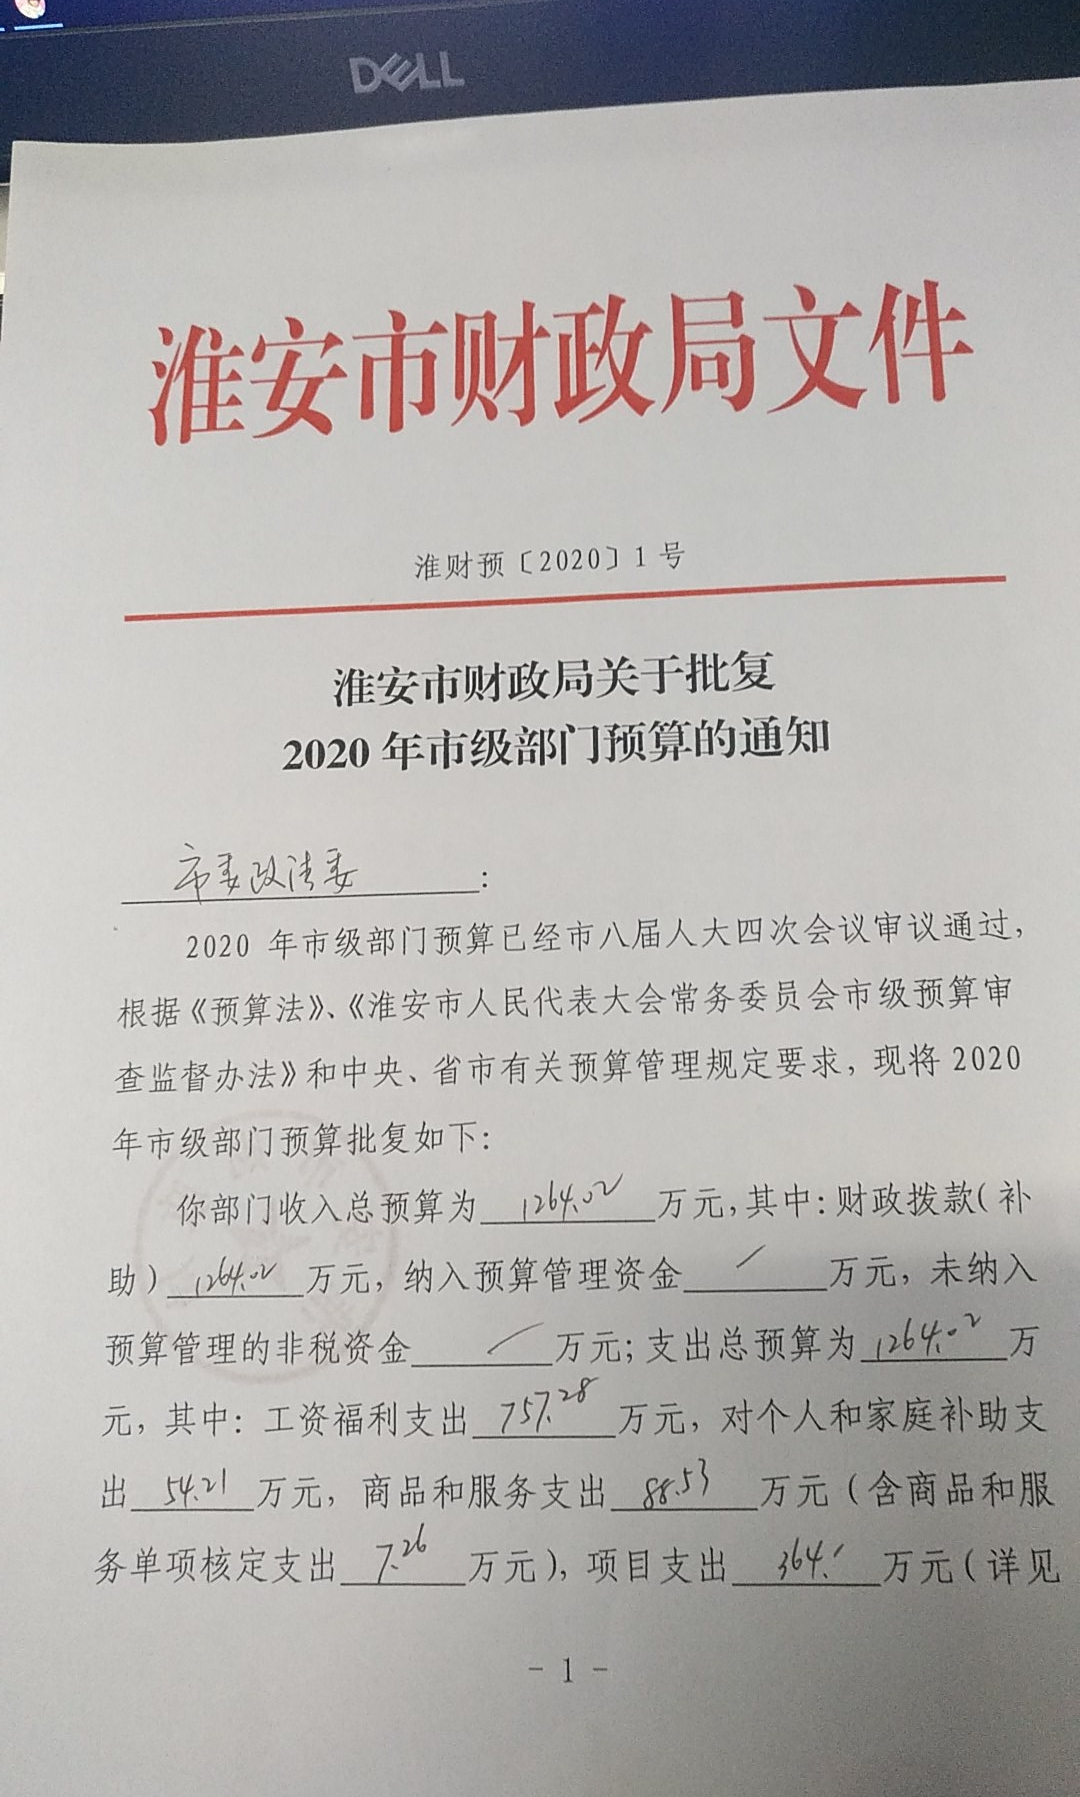 DELL
淮安市财政局文件
淮财预〔2020〕1号
淮安市财政局关于批复
2020年市级部门预算的通知
市委政法委：
2020 年市级部门预算已经市八届人大四次会议审议通过，
根据《预算法》、《淮安市人民代表大会常务委员会市级预算审
查监督办法》和中央、省市有关预算管理规定要求，现将 2020
年市级部门预算批复如下：
你部门收入总预算为 1264.02 万元，其中：财政拨款（补
助）1264.02 万元，纳入预算管理资金 / 万元，未纳入
预算管理的非税资金 / 万元；支出总预算为 1264.02 万
元，其中：工资福利支出 757.28 万元，对个人和家庭补助支
出 54.21 万元，商品和服务支出 88.53 万元（含商品和服
务单项核定支出 7.26 万元），项目支出 364. 万元（详见
- 1 -